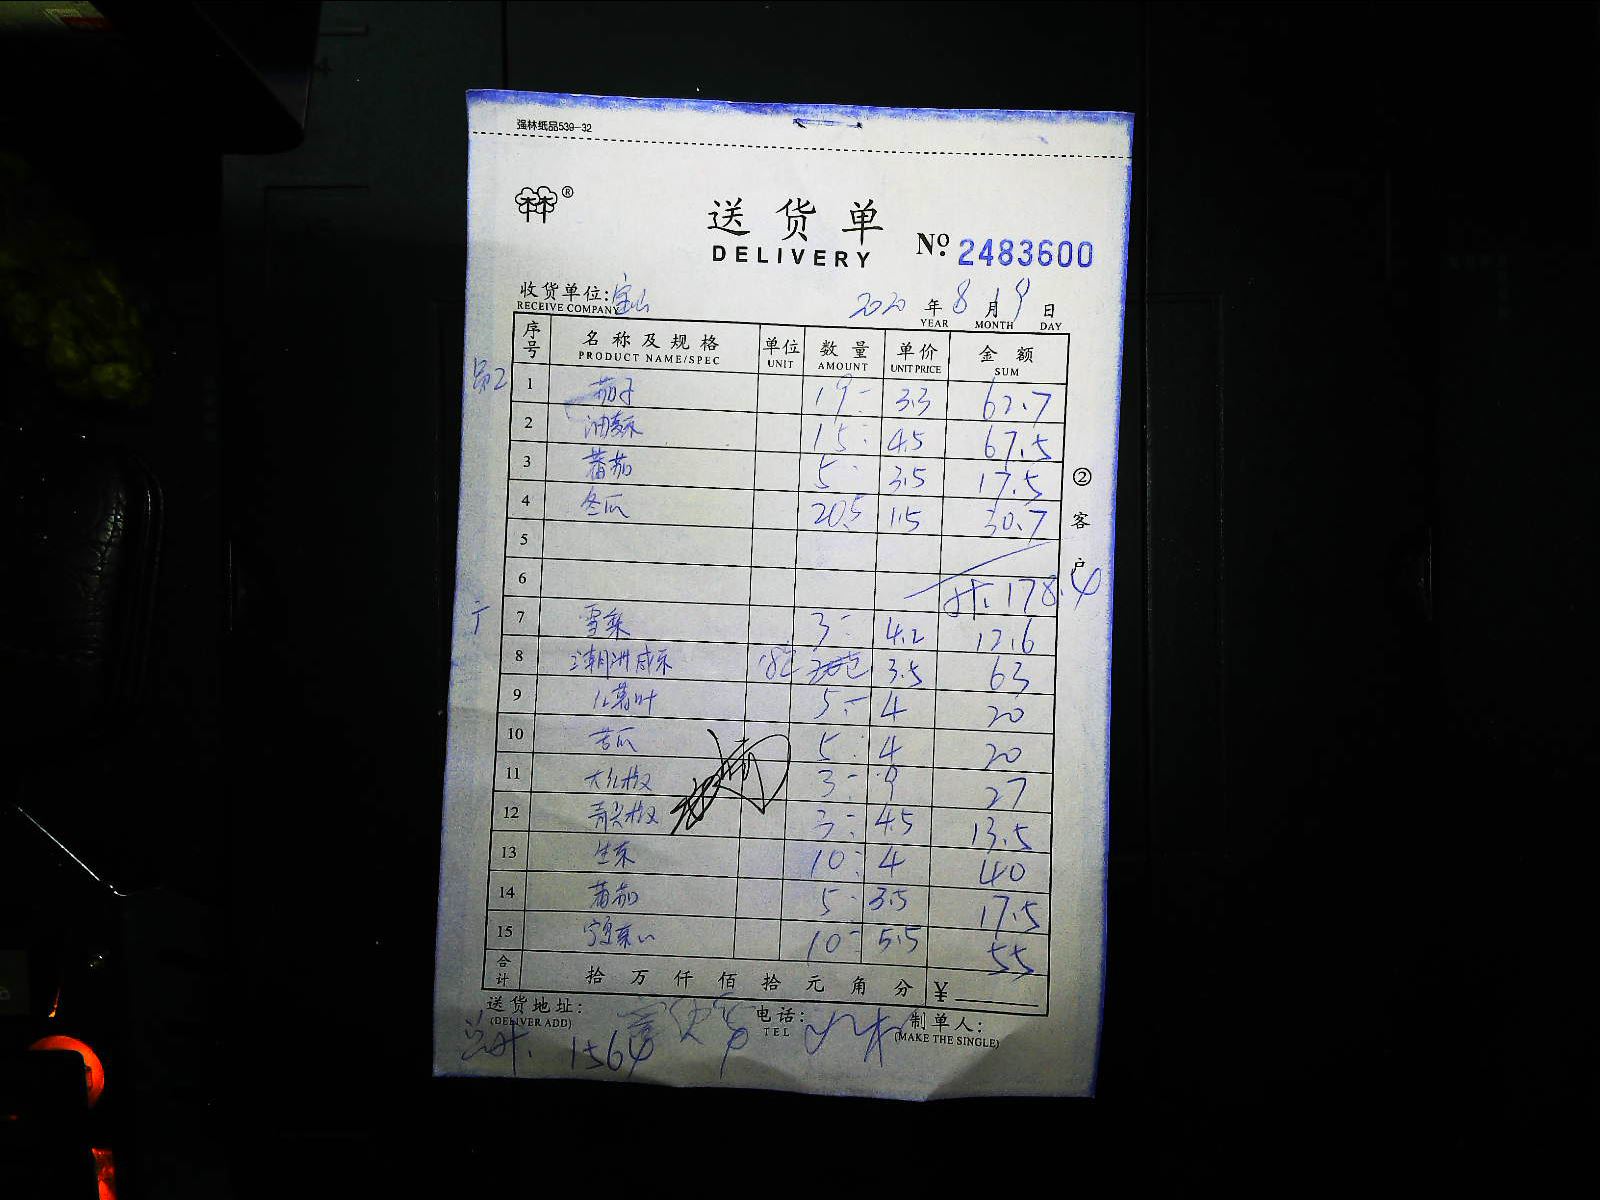 强林纸品539-32
®
送货单
DELIVERY
No. 2483600
收货单位: 宝山
RECEIVE COMPANY
2020 年 8 月 19 日
YEAR MONTH DAY
序号 名称及规格 单位 数量 单价 金额
PRODUCT NAME/SPEC UNIT AMOUNT UNIT PRICE SUM
1 茄子 19 3.3 62.7
2 油麦菜 15 4.5 67.5
3 蕃茄 5 3.5 17.5
4 冬瓜 20.5 1.5 30.7
5
6 计. 178.4
7 雪菜 3 4.2 12.6
8 潮洲咸菜 18包 3.5 63
9 红薯叶 5 4 20
10 苦瓜 5 4 20
11 大红椒 3 9 27
12 青尖椒 3 4.5 13.5
13 生菜 10 4 40
14 蕃茄 5 3.5 17.5
15 10 5.5 55
合计 拾 万 仟 佰 拾 元 角 分 ¥
送货地址: 电话: 制单人:
(DELIVER ADD) TEL (MAKE THE SINGLE)
总计. 1564
②客户